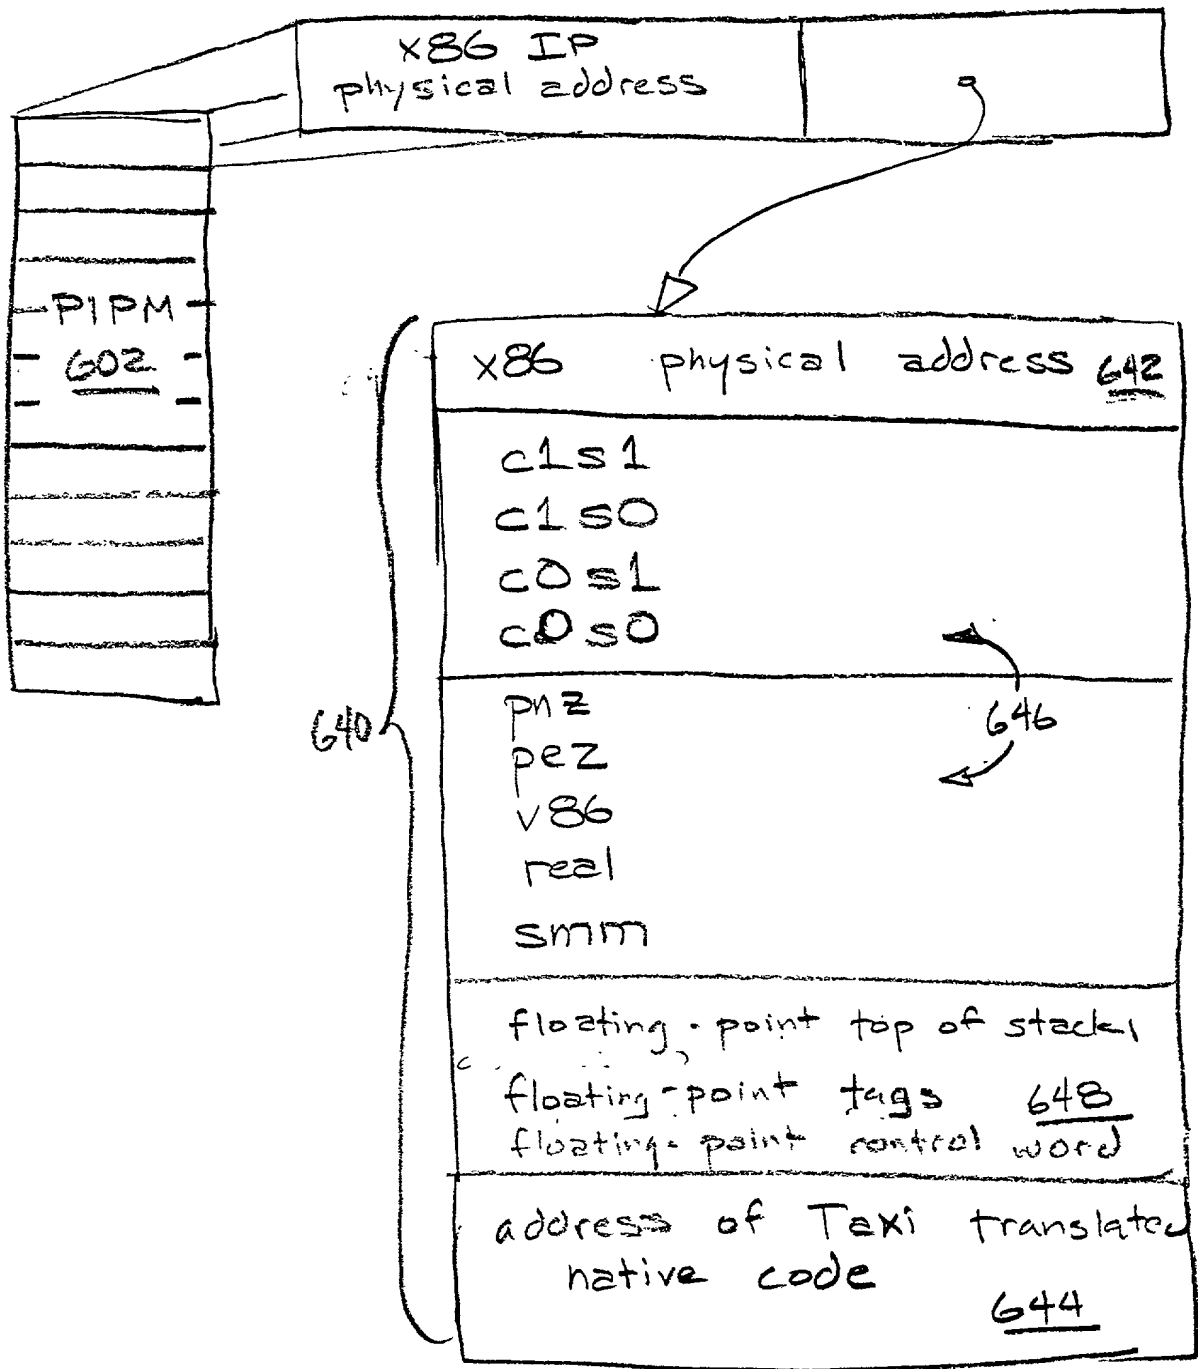 x86 IP
physical address
PIPM
602
x86 physical address 642
c1s1
c1s0
c0s1
c0s0
646
pnz
640
pez
v86
real
smm
floating-point top of stack
floating-point tags 648
floating-point control word
address of Taxi translated
native code
644